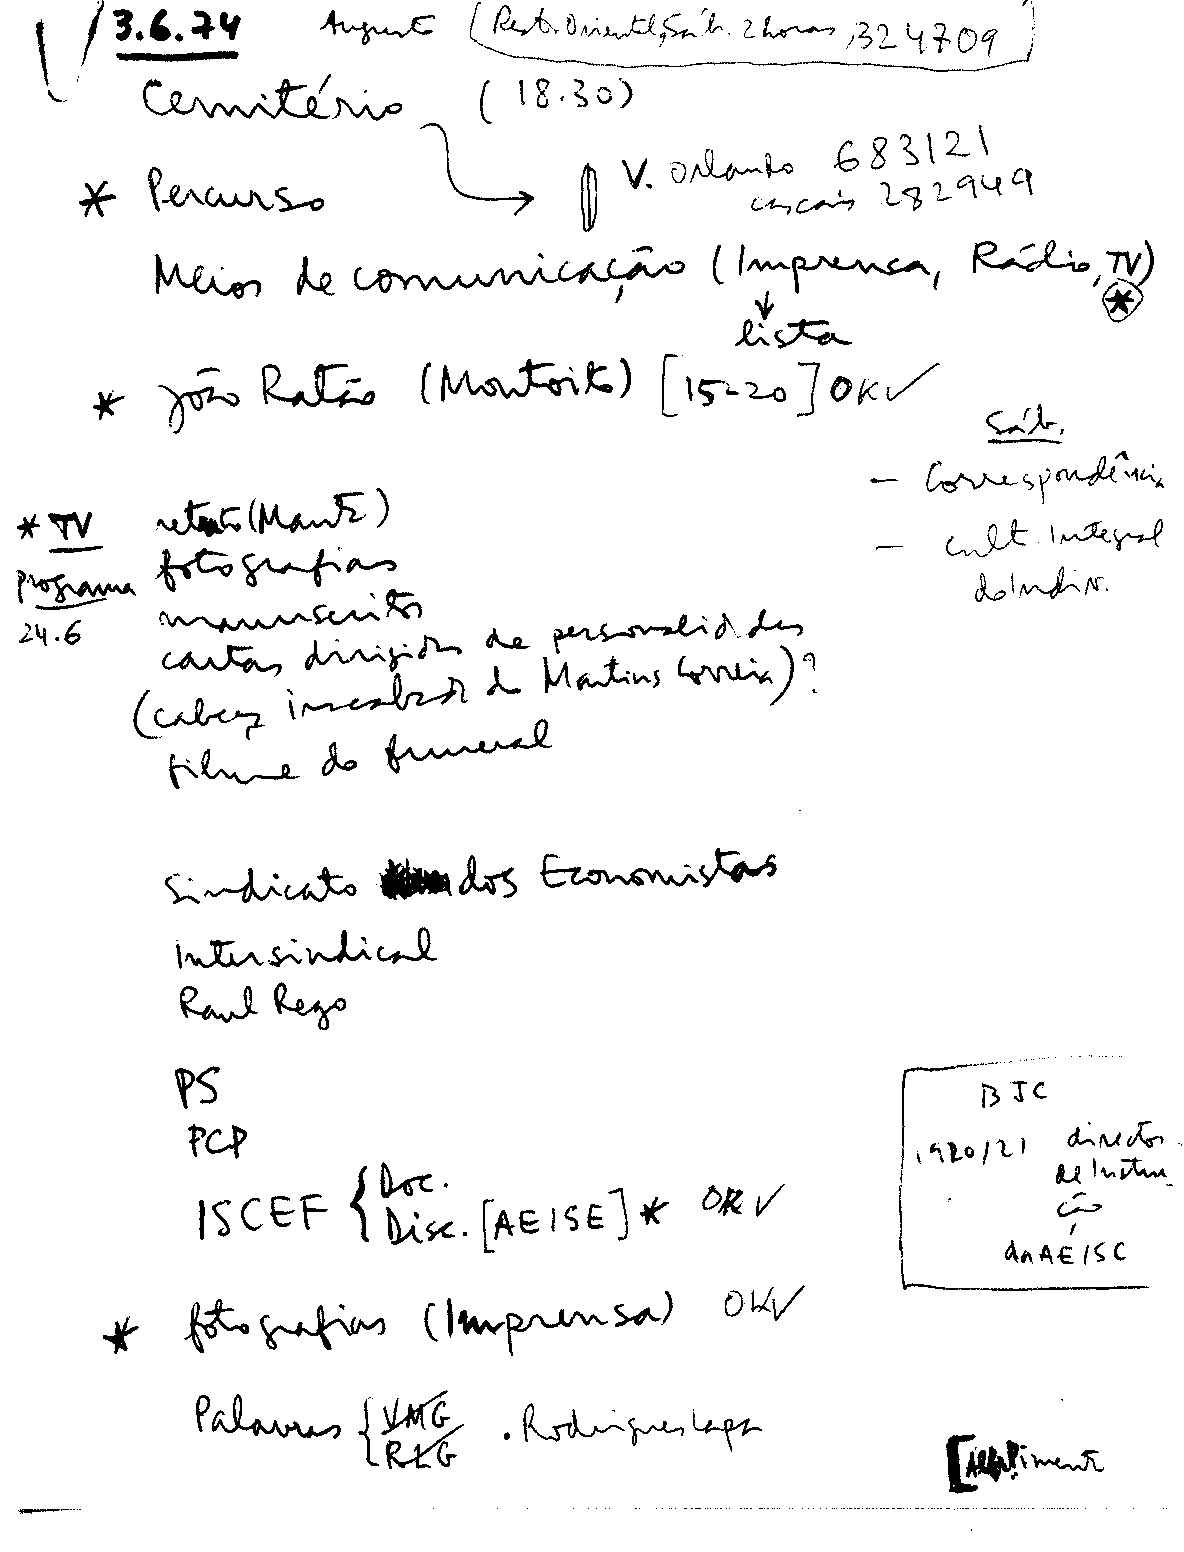 3.6.74 Augusto (Rest. Oriental, Sáb. 2 horas, 324709
Cemitério (18.30)
V. Orlando 683121
Cascais 282949
* Percurso
Meios de comunicação (Imprensa, Rádio, TV)
*
lista
* João Ratão (Montoito) [15-20] OK
Sáb.
- Correspondência
- Cult. Integral
do Indiv.
* TV
programa
24.6
retrato (Manta)
fotografias
manuscritos
cartas dirigidas de personalidades
(cabeça inacabada de Martins Correia)?
filme do funeral
Sindicato dos Economistas
Intersindical
Raul Rego
PS
PCP
ISCEF { Doc.
Disc. [AEISE] * OK
BJC
1920/21 director
de Instru-
ção
da AEISC
* fotografias (Imprensa) OK
Palavras { VMG . Rodrigues Lapa
RLG
Pimenta